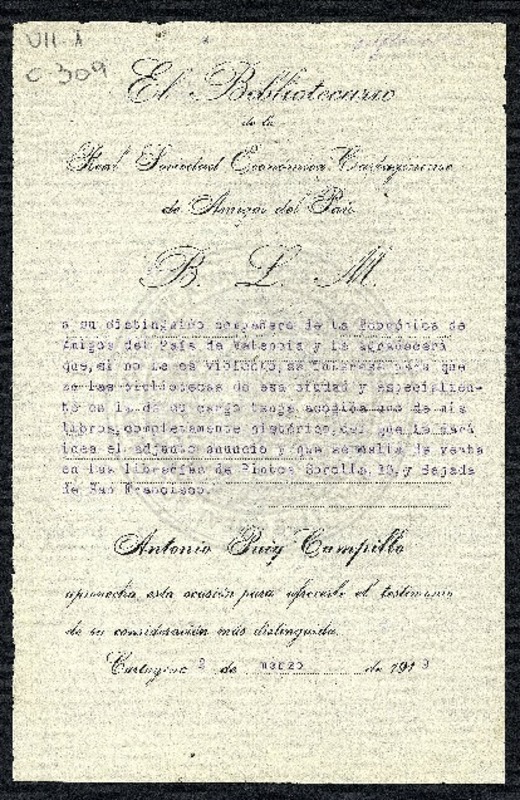 VII-1
C 309
El Bibliotecario
de la
Real Sociedad Económica Cartagenera
de Amigos del País
B. L. M.
a su distinguido compañero de la Económica de
Amigos del País de Valencia y le agradecerá
que, si no le es violento, se interese para que
en las bibliotecas de esa ciudad y especialmen-
te en la de su cargo tenga acogida uno de mis
libros, completamente histórico, del que le
el adjunto anuncio y que se halla de venta
en las librerías de Sorolla, 10, y Bajada
de San Francisco.
Antonio Puig Campillo
aprovecha esta ocasión para ofrecerle el testimonio
de su consideración más distinguida.
Cartagena 2 de marzo de 191